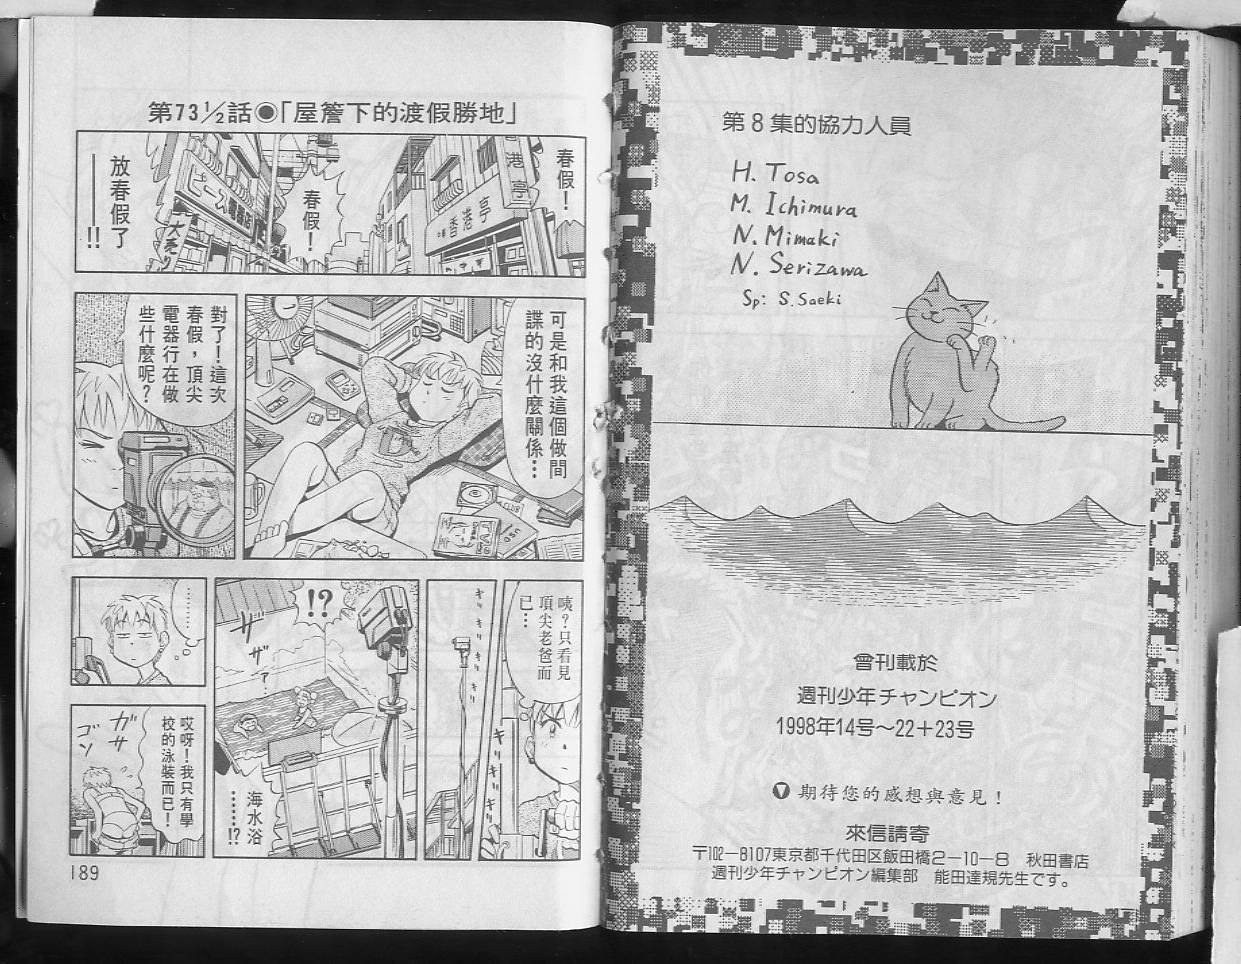 第8集的協力人員
H. Tosa
M. Ichimura
N. Mimaki
N. Serizawa
Sp: S. Saeki
曾刊載於
週刊少年チャンピオン
1998年14号～22+23号
期待您的感想與意見！
來信請寄
〒102-8107東京都千代田区飯田橋2-10-8 秋田書店
週刊少年チャンピオン編集部 能田達規先生です。
第73½話●「屋簷下的渡假勝地」
春假！
港亭
香港亭
春假！
ピース電器店
大売り
放春假了
——!!
可是和我這個做間
諜的沒什麼關係…
CLUB
對了！這次
春假，頂尖
電器行在做
些什麼呢？
咦？只看見
頂尖老爸而
已…
キリ
キリ
キリ
キリ
!?
ザザァ…
海水浴
………!?
………
哎呀！我只有學
校的泳裝而已！
ガサ
ゴソ
189